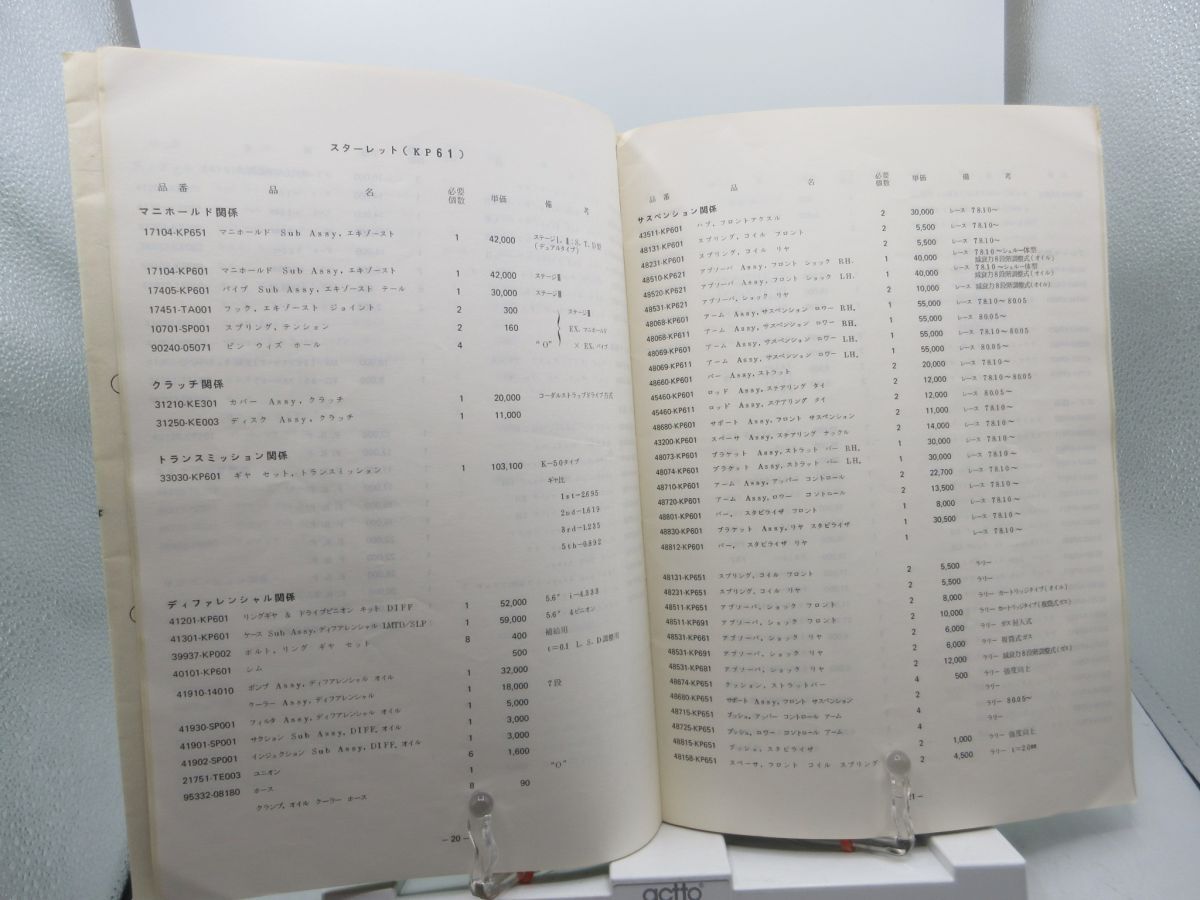 スターレット(KP61)
品番 品名 必要個数 単価 備考
マニホールド関係
17104-KP651 マニホールド Sub Assy, エキゾースト 1 42,000 ステージI, II:S. T. D型
(デュアルタイプ)
17104-KP601 マニホールド Sub Assy, エキゾースト 1 42,000 ステージIII
17405-KP601 パイプ Sub Assy, エキゾースト テール 1 30,000 ステージIII
17451-TA001 フック, エキゾースト ジョイント 2 300 ステージIII
10701-SP001 スプリング, テンション 2 160 EX. マニホールド
90240-05071 ピン ウィズ ホール 4 "O" × EX. パイプ
クラッチ関係
31210-KE301 カバー Assy, クラッチ 1 20,000 コーダルストラップドライブ方式
31250-KE003 ディスク Assy, クラッチ 1 11,000
トランスミッション関係
33030-KP601 ギヤ セット, トランスミッション 1 103,100 K-50タイプ
ギヤ比
1st-2.695
2nd-1.619
3rd-1.235
5th-0.892
ディファレンシャル関係
41201-KP601 リングギヤ & ドライブピニオン キット DIFF 1 52,000 5.6" i-4.333
41301-KP601 ケース Sub Assy, ディファレンシャル LMTD/SLP 1 59,000 5.6" 4ピニオン
39937-KP002 ボルト, リング ギヤ セット 8 400 補給用
40101-KP601 シム 500 t=0.1 L. S. D調整用
41910-14010 ポンプ Assy, ディファレンシャル オイル 1 32,000
クーラー Assy, ディファレンシャル 1 18,000 7段
41930-SP001 フィルタ Assy, ディファレンシャル オイル 1 5,000
41901-SP001 サクション Sub Assy, DIFF. オイル 1 3,000
41902-SP001 インジェクション Sub Assy, DIFF. オイル 1 3,000
21751-TE003 ユニオン 6 1,600
95332-08180 ホース 1 "O"
クランプ, オイル クーラー ホース 8 90
-20-
品番 品名 必要個数 単価 備考
サスペンション関係
43511-KP601 ハブ, フロントアクスル 2 30,000 レース 78.10~
48131-KP601 スプリング, コイル フロント 2 5,500 レース 78.10~
48231-KP601 スプリング, コイル リヤ 2 5,500 レース 78.10~
48510-KP621 アブソーバ Assy, フロント ショック RH. 1 40,000 レース 78.10~シェル一体型
減衰力8段階調整式(オイル)
48520-KP621 アブソーバ Assy, フロント ショック LH. 1 40,000 レース 78.10~シェル一体型
減衰力8段階調整式(オイル)
48531-KP621 アブソーバ, ショック リヤ 2 10,000 レース 減衰力8段階調整式(オイル)
48068-KP601 アーム Assy, サスペンション ロワー RH. 1 55,000 レース 78.10~80.05
48068-KP611 アーム Assy, サスペンション ロワー RH. 1 55,000 レース 80.05~
48069-KP601 アーム Assy, サスペンション ロワー LH. 1 55,000 レース 78.10~80.05
48069-KP611 アーム Assy, サスペンション ロワー LH. 1 55,000 レース 80.05~
48660-KP601 バー Assy, ストラット 2 20,000 レース 78.10~
45460-KP601 ロッド Assy, ステアリング タイ 2 12,000 レース 78.10~80.05
45460-KP611 ロッド Assy, ステアリング タイ 2 12,000 レース 80.05~
48680-KP601 サポート Assy, フロント サスペンション 2 11,000 レース 78.10~
43200-KP601 スペーサ Assy, ステアリング ナックル 2 14,000 レース 78.10~
48073-KP601 ブラケット Assy, ストラット バー RH. 1 30,000 レース 78.10~
48074-KP601 ブラケット Assy, ストラット バー LH. 1 30,000 レース 78.10~
48710-KP601 アーム Assy, アッパー コントロール 2 22,700 レース 78.10~
48720-KP601 アーム Assy, ロワー コントロール 2 13,500 レース 78.10~
48801-KP601 バー, スタビライザ フロント 1 8,000 レース 78.10~
48830-KP601 ブラケット Assy, リヤ スタビライザ 1 30,500 レース 78.10~
48812-KP601 バー, スタビライザ リヤ 1 レース 78.10~
48131-KP651 スプリング, コイル フロント 2 5,500 ラリー
48231-KP651 スプリング, コイル リヤ 2 5,500 ラリー
48511-KP651 アブソーバ, ショック フロント 2 8,000 ラリー カートリッジタイプ(オイル)
48511-KP691 アブソーバ, ショック フロント 2 10,000 ラリー カートリッジタイプ(複筒式ガス)
48531-KP661 アブソーバ, ショック リヤ 2 6,000 ラリー ガス封入式
48531-KP691 アブソーバ, ショック リヤ 2 6,000 ラリー 複筒式ガス
48531-KP681 アブソーバ, ショック リヤ 2 12,000 ラリー 減衰力8段階調整式(ガス)
48674-KP651 クッション, ストラットバー 4 500 ラリー 強度向上
48680-KP651 サポート Assy, フロント サスペンション 2 ラリー
48715-KP651 ブッシュ, アッパー コントロール アーム 4 ラリー 80.05~
48725-KP651 ブッシュ, ロワー コントロール アーム 4 ラリー
48815-KP651 ブッシュ, スタビライザ 2 1,000 ラリー 強度向上
48158-KP651 スペーサ, フロント コイル スプリング 2 4,500 ラリー t=2.0mm
21-
actto